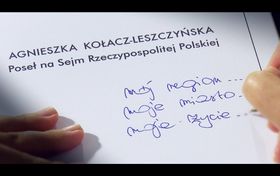 AGNIESZKA KOŁACZ-LESZCZYŃSKA
Poseł na Sejm Rzeczypospolitej Polskiej
mój region ...
moje miasto ...
moje życie ...